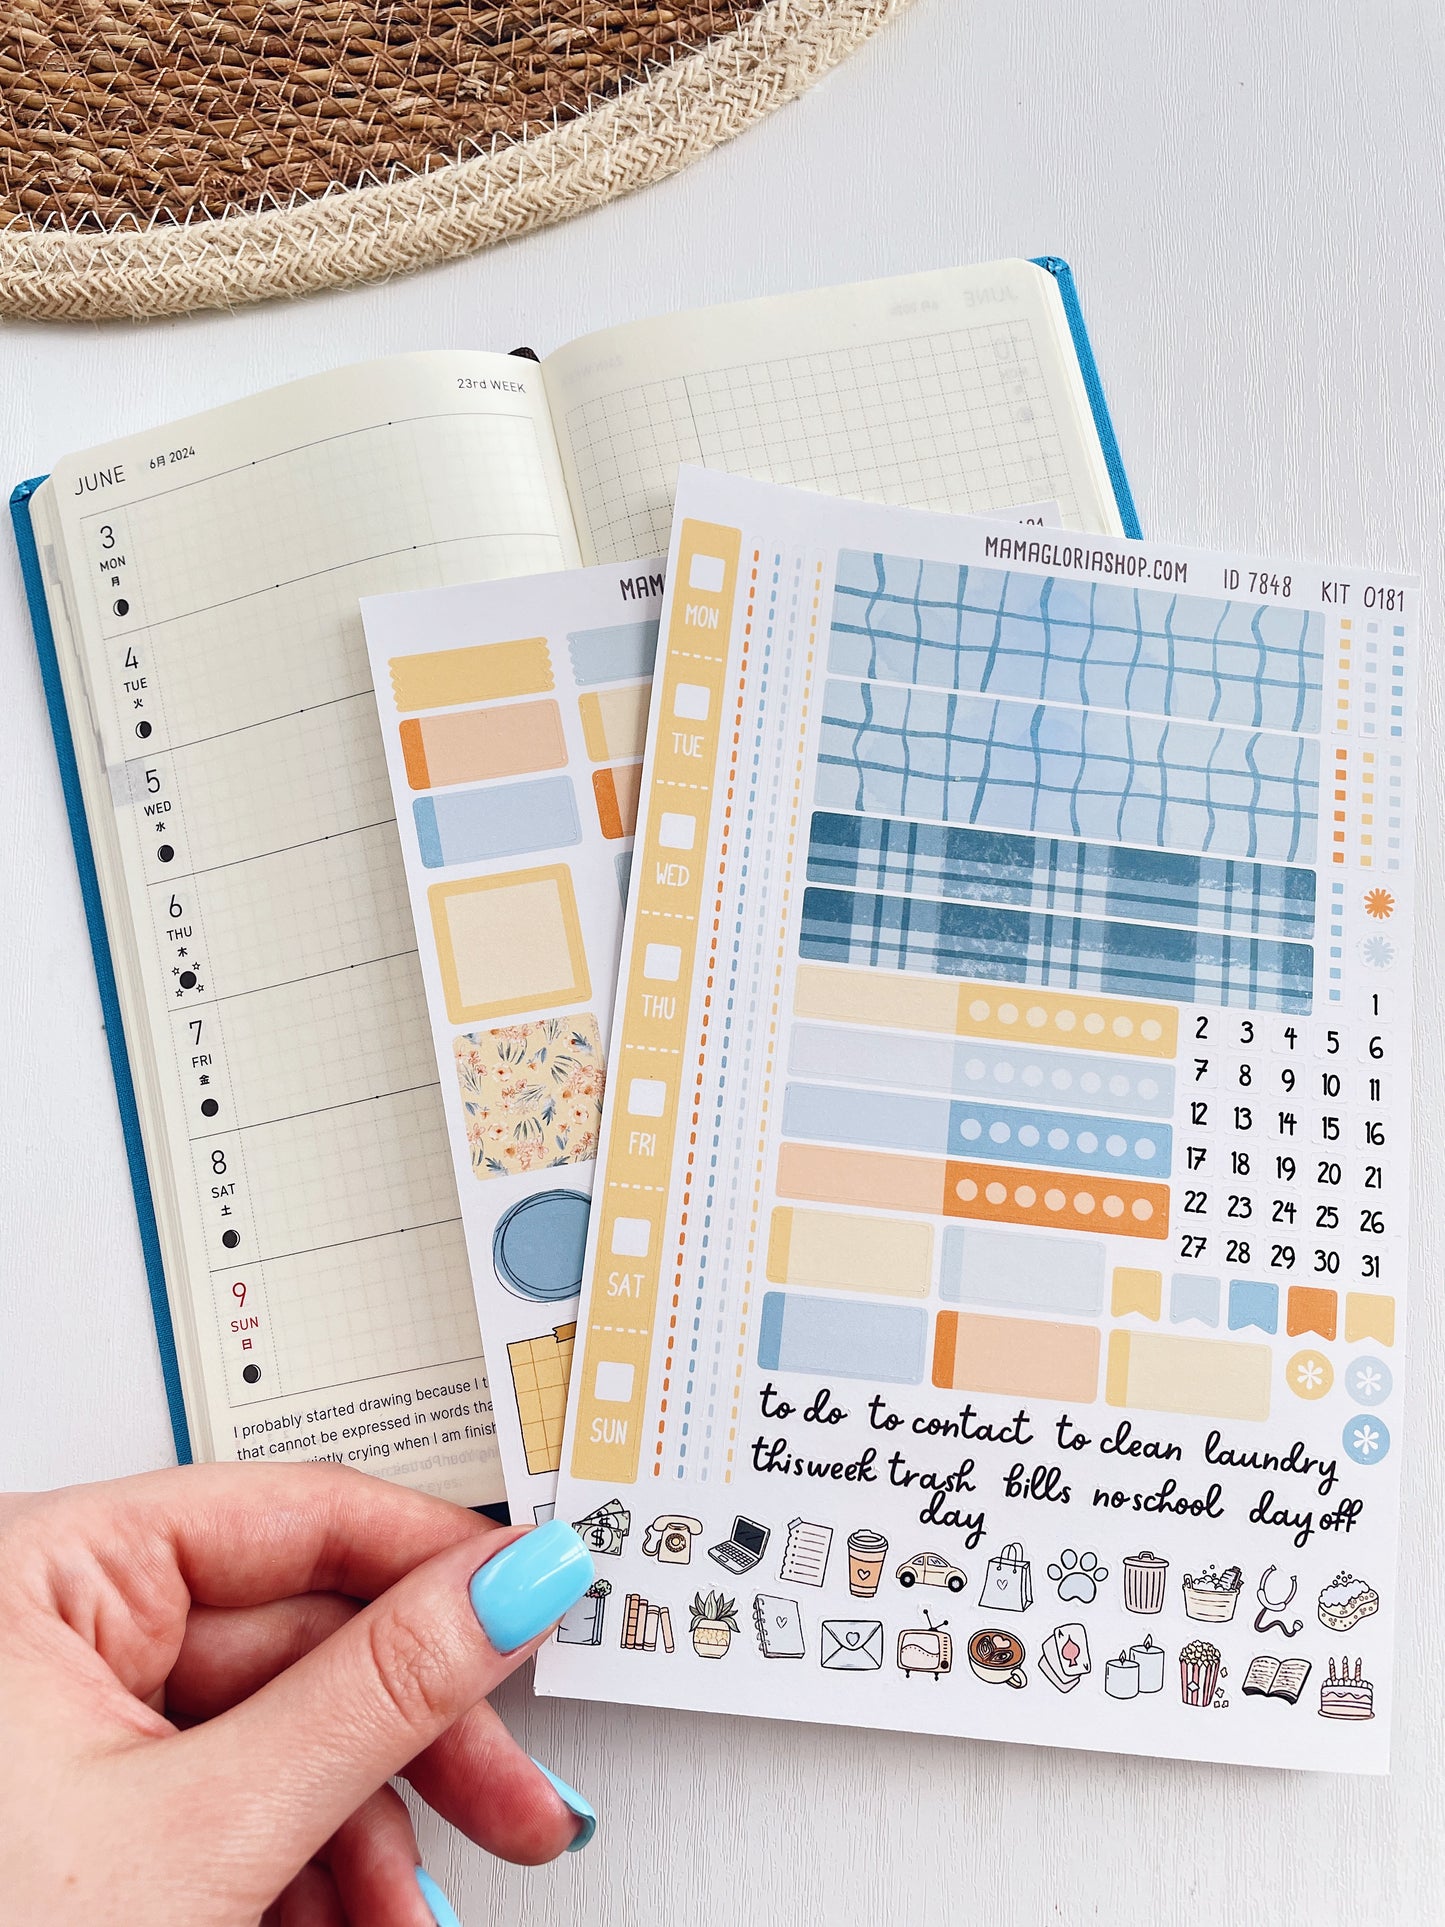 23rd WEEK
JUNE 6月 2024
3
MON
月
4
TUE
火
5
WED
水
6
THU
木
7
FRI
金
8
SAT
土
9
SUN
日
I probably started drawing because I
that cannot be expressed in words
crying when I am
MAM
MAMAGLORIASHOP.COM ID 7848 KIT 0181
MON
TUE
WED
THU
FRI
SAT
SUN
1
2 3 4 5 6
7 8 9 10 11
12 13 14 15 16
17 18 19 20 21
22 23 24 25 26
27 28 29 30 31
to do to contact to clean laundry
this week trash day bills no school day off
A